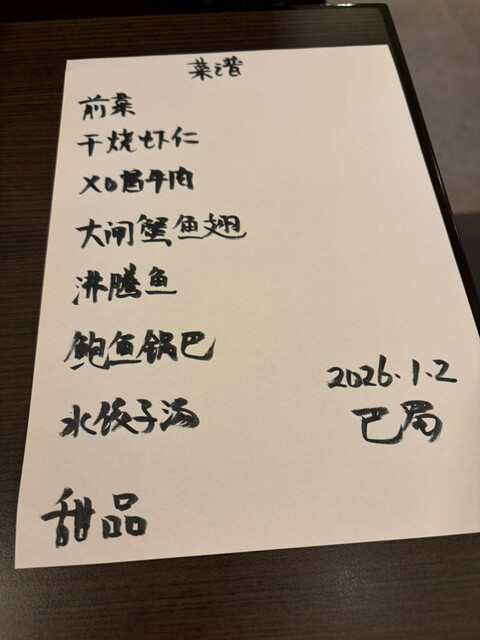 菜谱
前菜
干烧虾仁
XO酱牛肉
大闸蟹鱼翅
沸腾鱼
鲍鱼锅巴
水饺子汤
甜品
2026.1.2
巴局